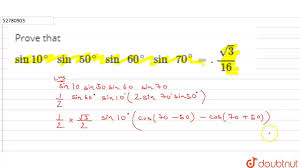 52780903
Prove that
sin 10° sin 50° sin 60° sin 70° = . √3/16
LHS
sin 10 . sin 50 sin 60 sin 70
1/2 sin 60° sin 10° (2 sin 70° sin 50°)
1/2 × √3/2 sin 10° (cos(70 - 50) - cos(70 + 50))
doubtnut